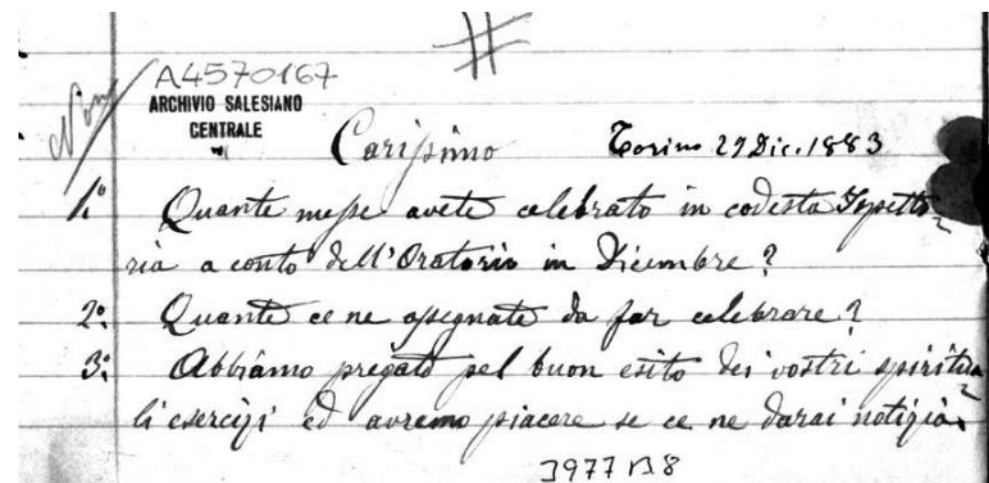 A4570167
ARCHIVIO SALESIANO
CENTRALE
Carissimo Torino 29 Dic. 1883
1.° Quante messe avete celebrato in codesta Ispetto
ria a conto dell'Oratorio in Dicembre?
2.° Quante ce ne assegnate da far celebrare?
3.° Abbiamo pregato pel buon esito dei vostri spiritua
li esercizi ed avremo piacere se ce ne darai notizia.
3977 B8